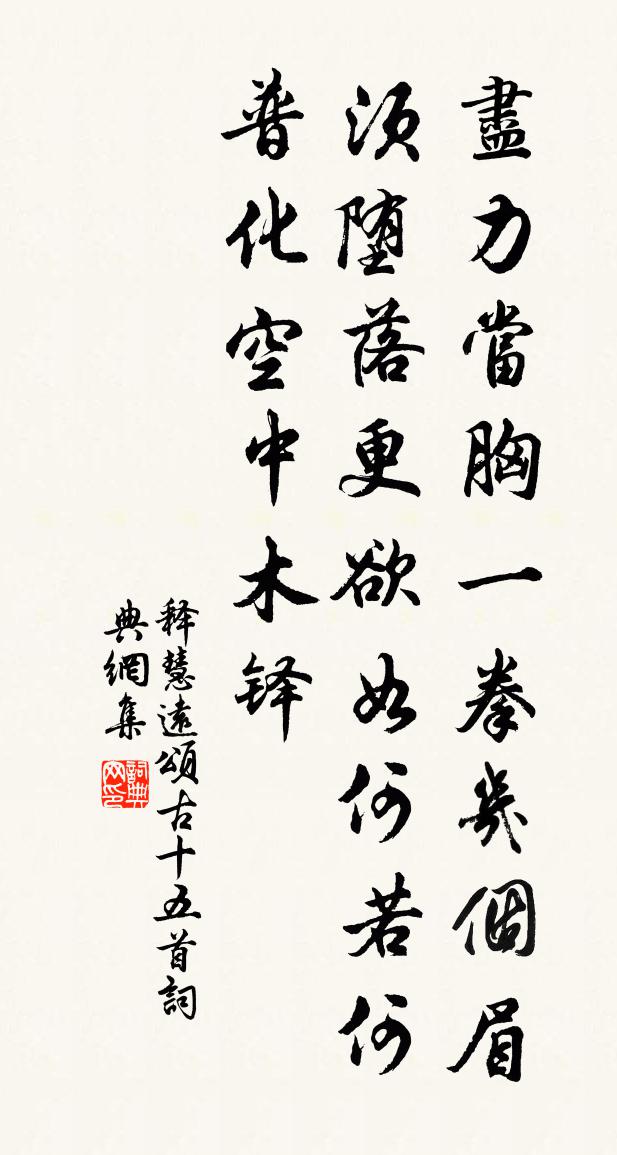 盡力當胸一拳幾個眉
須墮落更欲如何若何
普化空中木铎
释慧遠頌古十五首詞
典網集
詞典网印